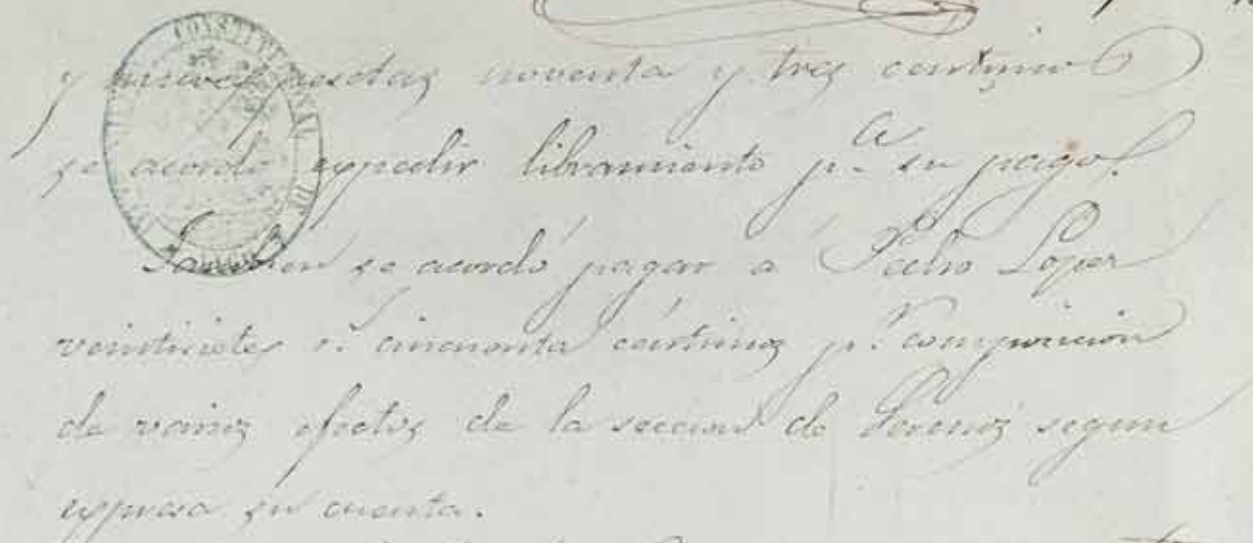 CONSTITUCIONAL DE
y nueve pesetas noventa y tres centimos
se acordó expedir libramiento pª su pago.
Tambien se acordó pagar a Pedro Lopez
veintisiete rˢ cincuenta centimos pʳ composicion
de varios efectos de la seccion de segun
espresa su cuenta.